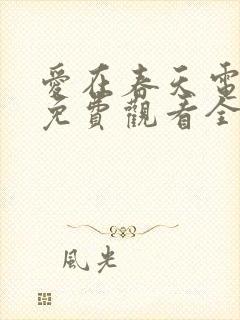 愛在春天電
免費觀看全
風光